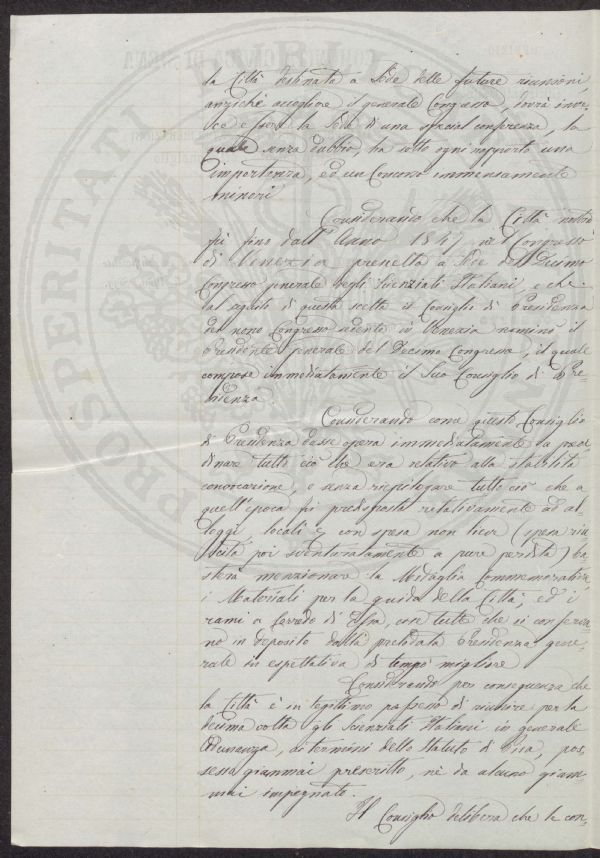 la Città destinata a Sede delle future riunioni,
anziché accogliere il generale Congresso, dovrà
essere la Sede di una special conferenza, la
quale senza dubbio, ha sotto ogni rapporto una
importanza, ed un Concorso immensamente
minori
Considerando che la Città nostra
fù fino dall' Anno 1847 nel Congresso
di Venezia prescelta a Sede del Decimo
Congresso generale degli Scienziati Italiani, e che
al seguito di questa scelta il Consiglio di Presidenza
del nono Congresso sedente in Venezia nominò il
Presidente generale del Decimo Congresso, il quale
compose immediatamente il Suo Consiglio di Pre-
sidenza.
Considerando come questo Consiglio
di Presidenza desse opera immediatamente a
dinare tutto ciò che era relativo alla stabilita
convocazione, e senza riepilogare tutto ciò che a
quell'epoca fù predisposto relativamente ad al-
loggi, locali, e con spesa non lieve (spesa riu-
scita poi sventuratamente a pura perdita) ba-
sterà menzionare la Medaglia Commemorativa,
i Materiali per la guida della Città, ed i
rami a corredo di Essa, cose tutte che si conserva-
no in deposito dalla prelodata Presidenza gene-
rale in espettativa di tempo migliore
Considerando per conseguenza che
la Città è in legittimo possesso di riunire per la
decima volta gli Scienziati Italiani in generale
Adunanza, ai termini dello Statuto di Pisa, pos-
sesso giammai prescritto, nè da alcuno giam-
mai impegnato.
Il Consiglio delibera che le con-
PROSPERITATI